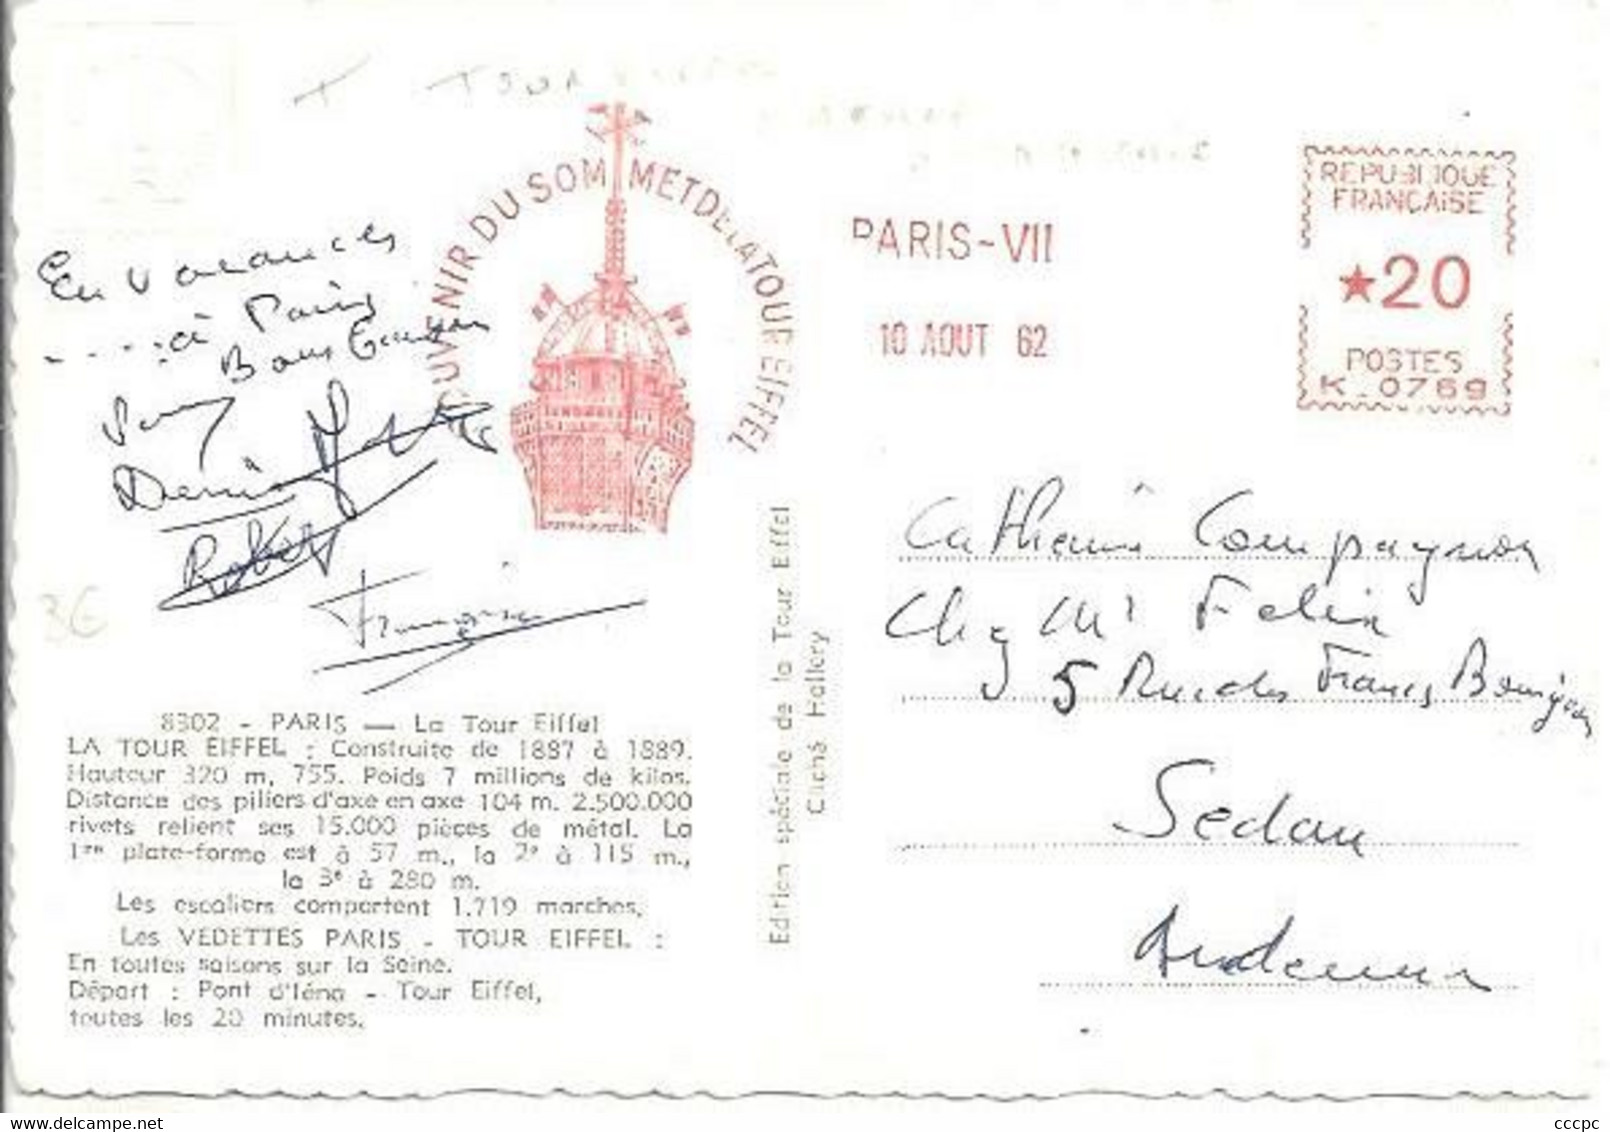 T TOUR
3€
En vacances
....à Paris
Bons
Denis
Robert
Françoise
SOUVENIR DU SOMMET DE LA TOUR EIFFEL
PARIS-VII
10 AOUT 62
REPUBLIQUE
FRANCAISE
★20
POSTES
K_0769
Catherine Compagnon
Chez Mr Felix
5 Rue des Francs Bourgeois
Sedan
Ardennes
8302 - PARIS — La Tour Eiffel
LA TOUR EIFFEL : Construite de 1887 à 1889.
Hauteur 320 m, 755. Poids 7 millions de kilos.
Distance des piliers d'axe en axe 104 m. 2.500.000
rivets relient ses 15.000 pièces de métal. La
1re plate-forme est à 57 m., la 2e à 115 m.,
la 3e à 280 m.
Les escaliers comportent 1.719 marches.
Les VEDETTES PARIS - TOUR EIFFEL :
En toutes saisons sur la Seine.
Départ : Pont d'Iéna - Tour Eiffel,
toutes les 20 minutes.
Edition spéciale de la Tour Eiffel
Cliché Hallery
www.delcampe.net
cccpc